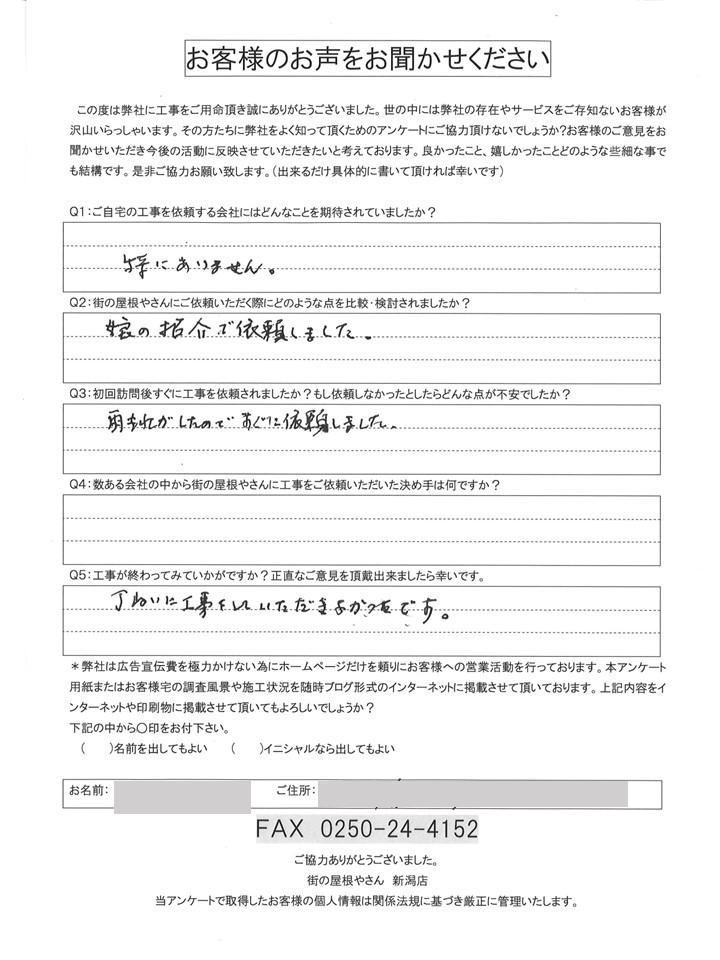 お客様のお声をお聞かせください
この度は弊社に工事をご用命頂き誠にありがとうございました。世の中には弊社の存在やサービスをご存知ないお客様が
沢山いらっしゃいます。その方たちに弊社をよく知って頂くためのアンケートにご協力頂けないでしょうか?お客様のご意見をお
聞かせいただき今後の活動に反映させていただきたいと考えております。良かったこと、嬉しかったことどのような些細な事で
も結構です。是非ご協力お願い致します。(出来るだけ具体的に書いて頂ければ幸いです)
Q1:ご自宅の工事を依頼する会社にはどんなことを期待されていましたか?
特にありません。
Q2:街の屋根やさんにご依頼いただく際にどのような点を比較・検討されましたか?
娘の紹介で依頼しました。
Q3:初回訪問後すぐに工事を依頼されましたか?もし依頼しなかったとしたらどんな点が不安でしたか?
雨もれがしたのですぐに依頼しました。
Q4:数ある会社の中から街の屋根やさんに工事をご依頼いただいた決め手は何ですか?
Q5:工事が終わってみていかがですか?正直なご意見を頂戴出来ましたら幸いです。
丁ねいに工事をしていただきよかったです。
*弊社は広告宣伝費を極力かけない為にホームページだけを頼りにお客様への営業活動を行っております。本アンケート
用紙またはお客様宅の調査風景や施工状況を随時ブログ形式のインターネットに掲載させて頂いております。上記内容をイ
ンターネットや印刷物に掲載させて頂いてもよろしいでしょうか?
下記の中から〇印をお付下さい。
( )名前を出してもよい ( )イニシャルなら出してもよい
お名前: ご住所:
FAX 0250-24-4152
ご協力ありがとうございました。
街の屋根やさん 新潟店
当アンケートで取得したお客様の個人情報は関係法規に基づき厳正に管理いたします。